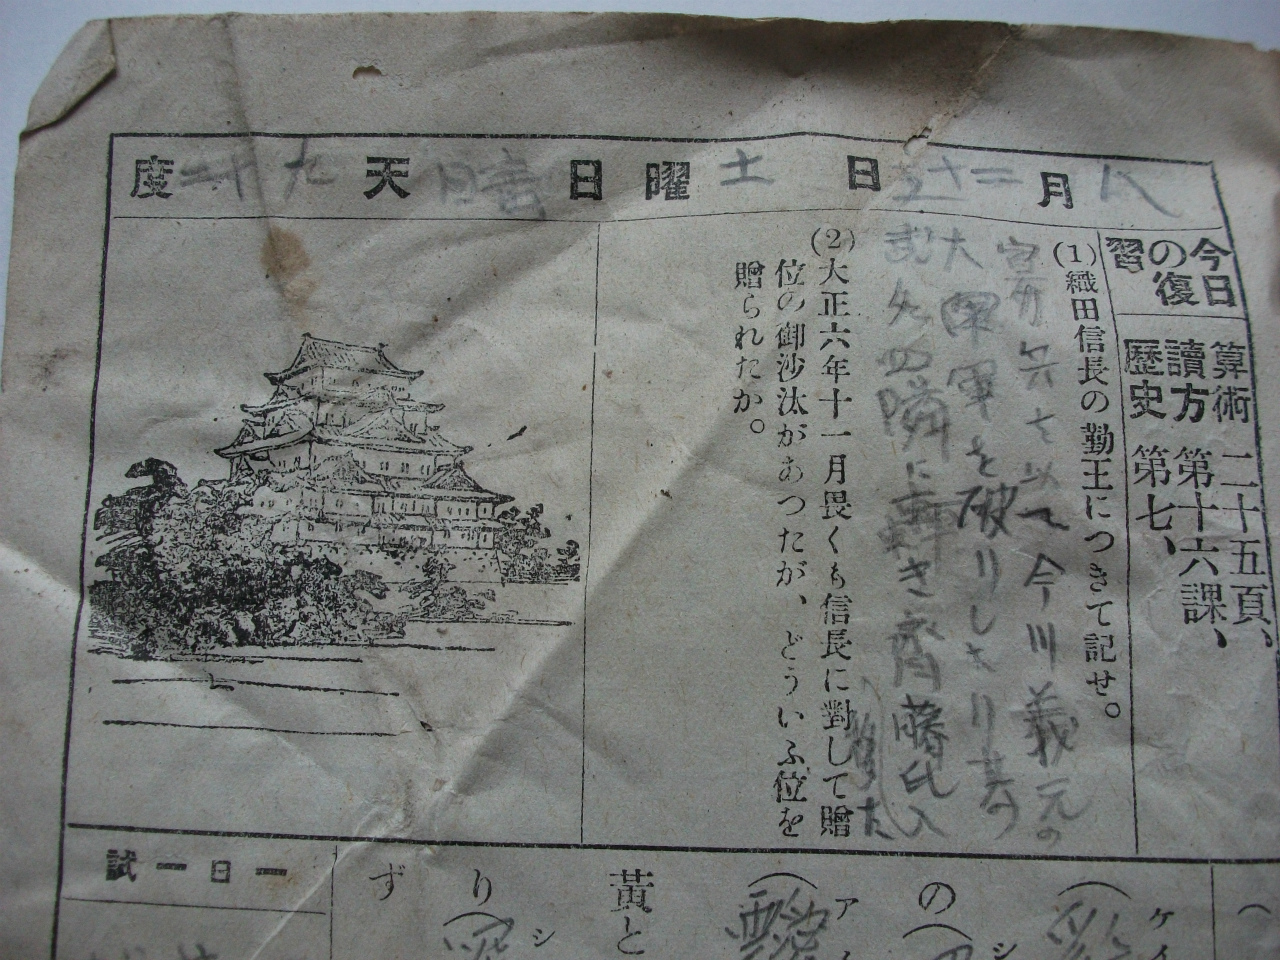 八月二十五日 土曜日 天晴 九十二度
今日の復習
算術 二十五頁、
讀方 第十六課、
歷史 第七、
(1)織田信長の勤王につきて記せ。
寡兵を以て今川義元の
大軍を破りしより其の
武名四隣に轟き齋藤氏
(2)大正六年十一月畏くも信長に對して贈
位の御沙汰があつたが、どういふ位を
贈られたか。
ケイ
の
シ
ア
黃と
り
シ
ず
一日一試